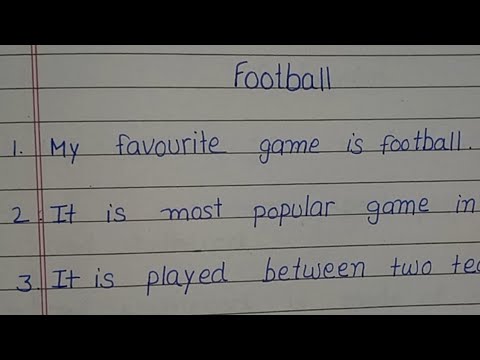 Football
1. My favourite game is football.
2. It is most popular game in
3. It is played between two